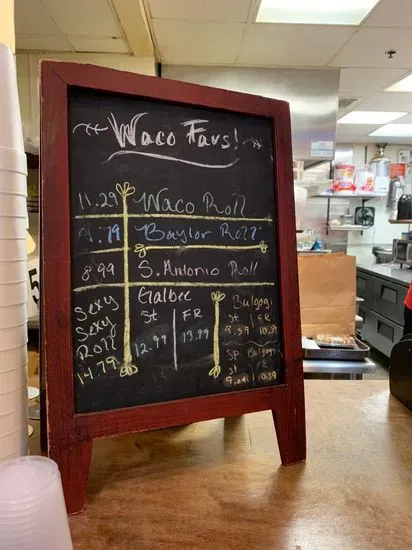 Waco Favs!
11.29 Waco Roll
9.79 Baylor Roll
8.99 S. Antonio Roll
Sexy
Sexy
Roll
14.79
Galbee
St FR
12.99 13.99
Bulgogi
St FR
9.59 10.59
SP Bulgogi
St FR
10.59